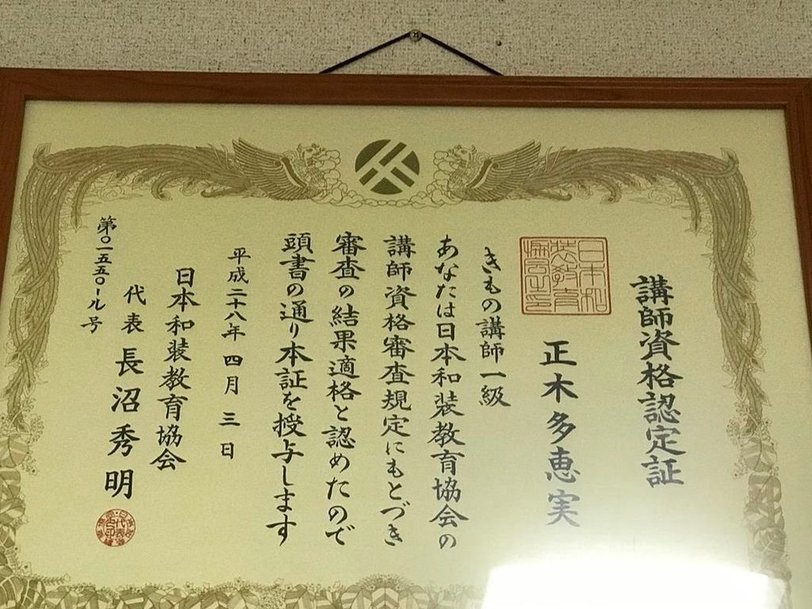 講師資格認定証
正木多恵実
きもの講師一級
あなたは日本和装教育協会の
講師資格審査規定にもとづき
審査の結果適格と認めたので
頭書の通り本証を授与します
平成二十八年四月三日
日本和装教育協会
代表 長沼秀明